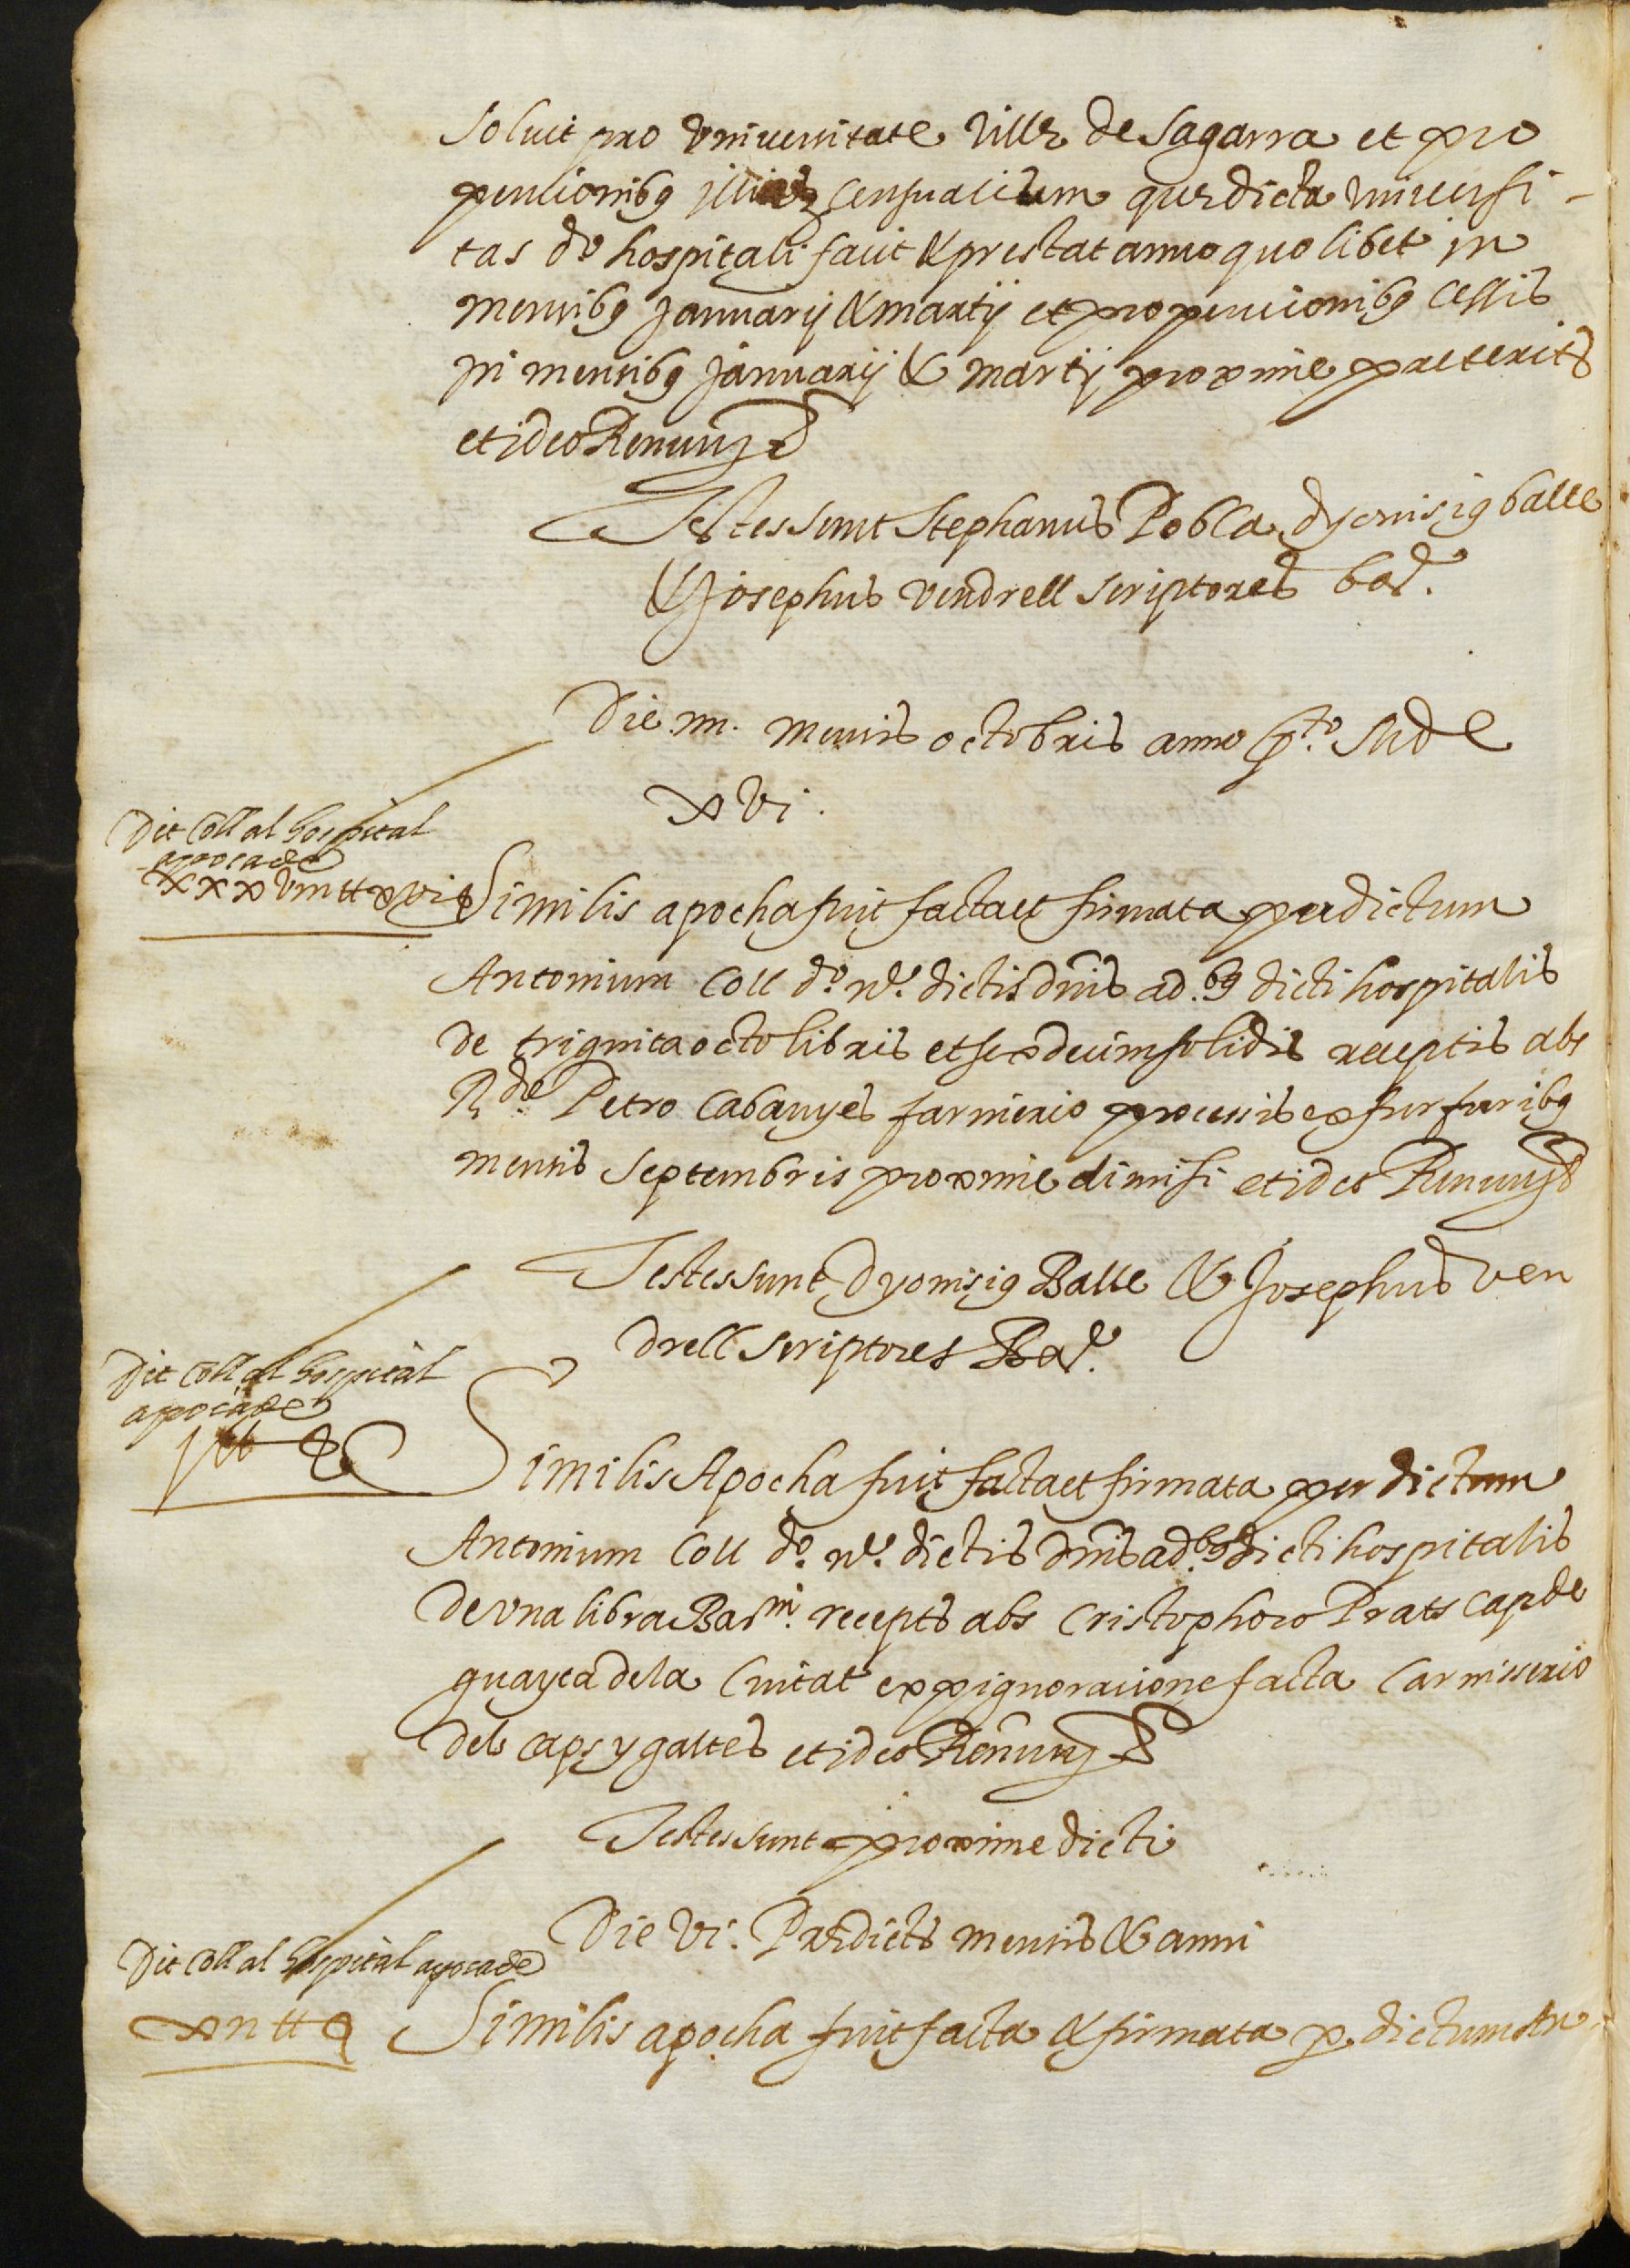 Soluit pro vniuersitate ville de Sagarra et pro
pencionibꝯ illius censualium que dicta vniuersi-
tas dº hospitali facit & prestat anno quolibet in
mensibꝯ Januarij & martij et pro pencionibꝯ cessis
in mensibꝯ Januarij & martij proxime preteritis
et ideo Renun
Testes sunt Stephanus Pobla dyonisiꝯ balle
& Josephus vendrell scriptores bar.
Die iiii. mensis octobris anno pto MDL
xvi.
Dit Coll al hospital
apoca de
xxxviii ll xvi s
Similis apocha fuit facta et firmata per dictum
Antonium Coll dº nº. dictis dnis ad.bꝯ dicti hospitalis
de triginta octo libris et sexdecim solidis receptis abs
Rdo Petro Cabanyes farinerio processis ex furfuribꝯ
mensis Septembris proxime dimisi et ideo Renun
Testes sunt dyonisiꝯ Balle & Josephus ven
drell scriptores Bar.
Dit Coll al hospital
apoca de
j ll
Similis Apocha fuit facta et firmata per dictum
Antonium Coll dº. nº. dictis dnis ad.bꝯ dicti hospitalis
de vna libra Barn. receptis abs Cristophoro Prats cap de
guayta de la Ciutat ex pignoracione facta Carnisserio
dels caps y galtes et ideo Renun
Testes sunt proxime dicti
Die vi. Predictis mensis & anni
Dit Coll al hospital apoca de
xii ll
Similis apocha fuit facta & firmata p dictum An-